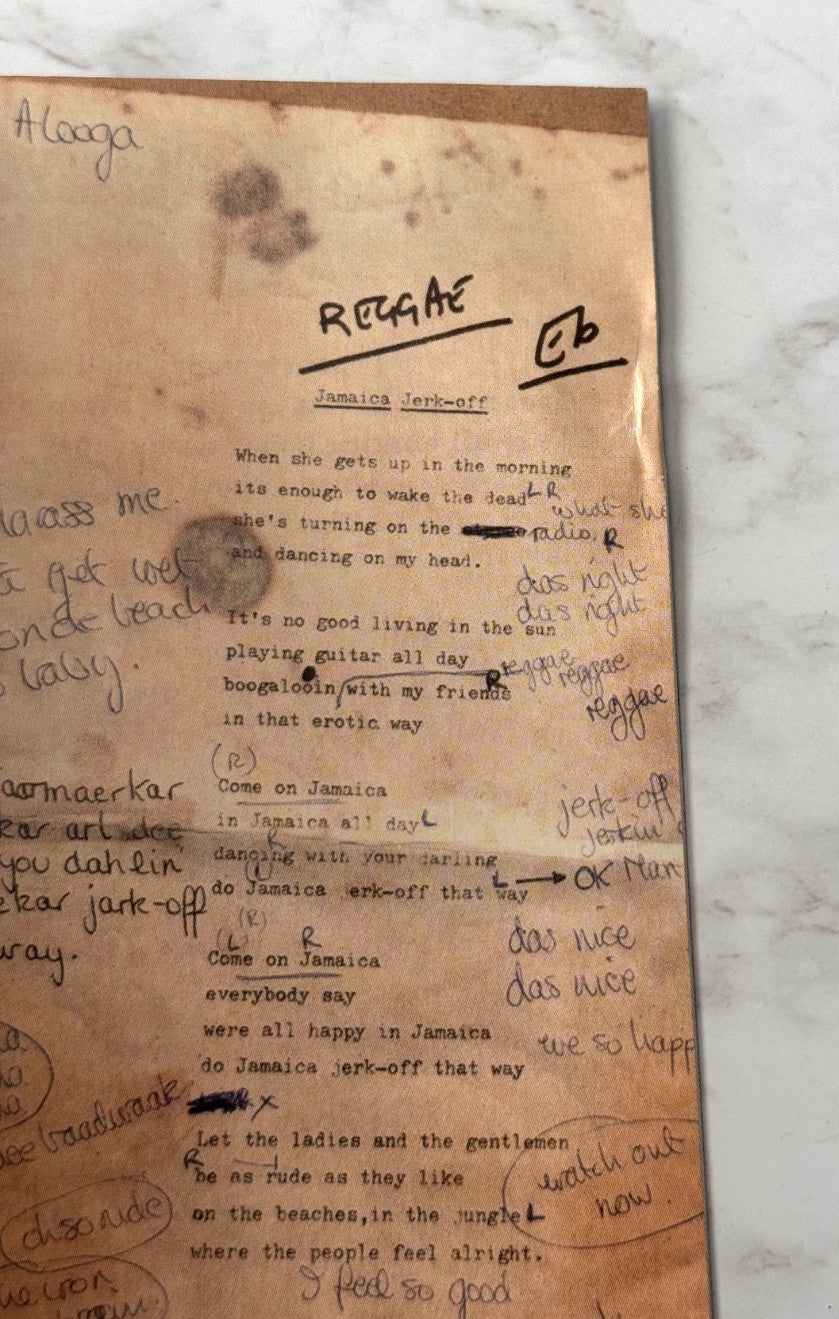 Alooga
REGGAE
Eb
Jamaica Jerk-off
When she gets up in the morning
its enough to wake the dead L R
what she
she's turning on the radio. R
and dancing on my head.
das right
das right
It's no good living in the sun
playing guitar all day
reggae reggae
boogalooin with my friends R
reggae
in that erotic way
(R)
Come on Jamaica
in Jamaica all day L
jerk-off
jerkin
dancing with your darling
do Jamaica jerk-off that way L → OK Man
(R)
(L) R
Come on Jamaica
das nice
everybody say
das nice
were all happy in Jamaica
we so happ
do Jamaica jerk-off that way
x
Let the ladies and the gentlemen
R
be as rude as they like
watch out
now.
on the beaches, in the jungle L
where the people feel alright.
I feel so good
me.
get wet
beach
baby.
you dahlin
jark-off
way.
oh so rude